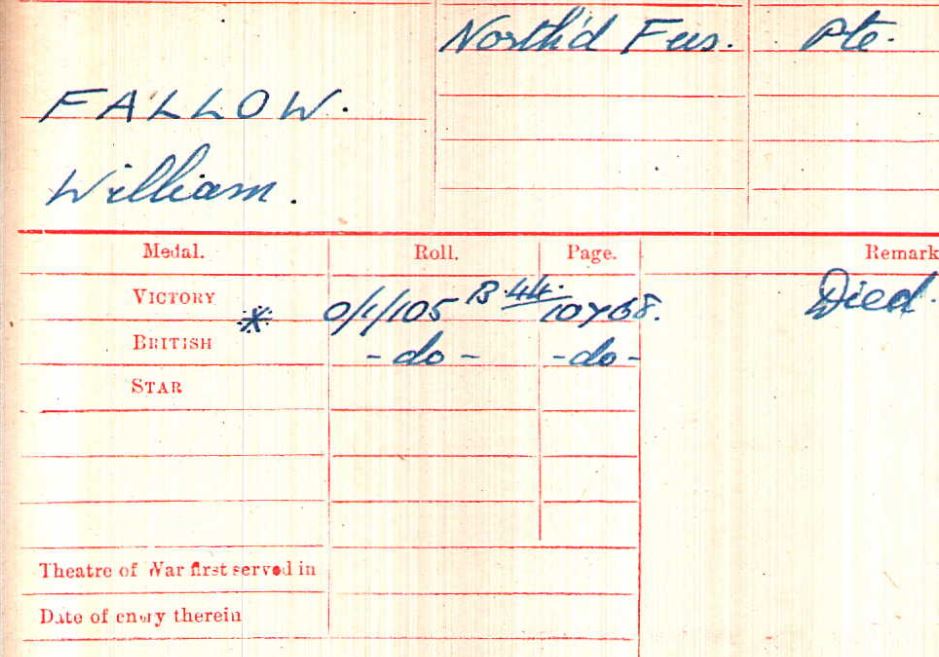 North'd Fus. Pte.
FALLOW.
William.
Medal. Roll. Page. Remark
VICTORY * 0/1/105 B.44. 10768.
BRITISH -do- -do-
Died.
STAR
Theatre of War first served in
Date of entry therein